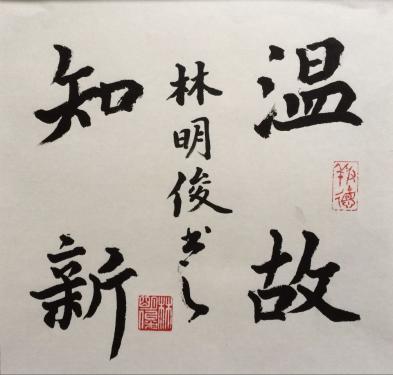 温故
知新
林明俊书之